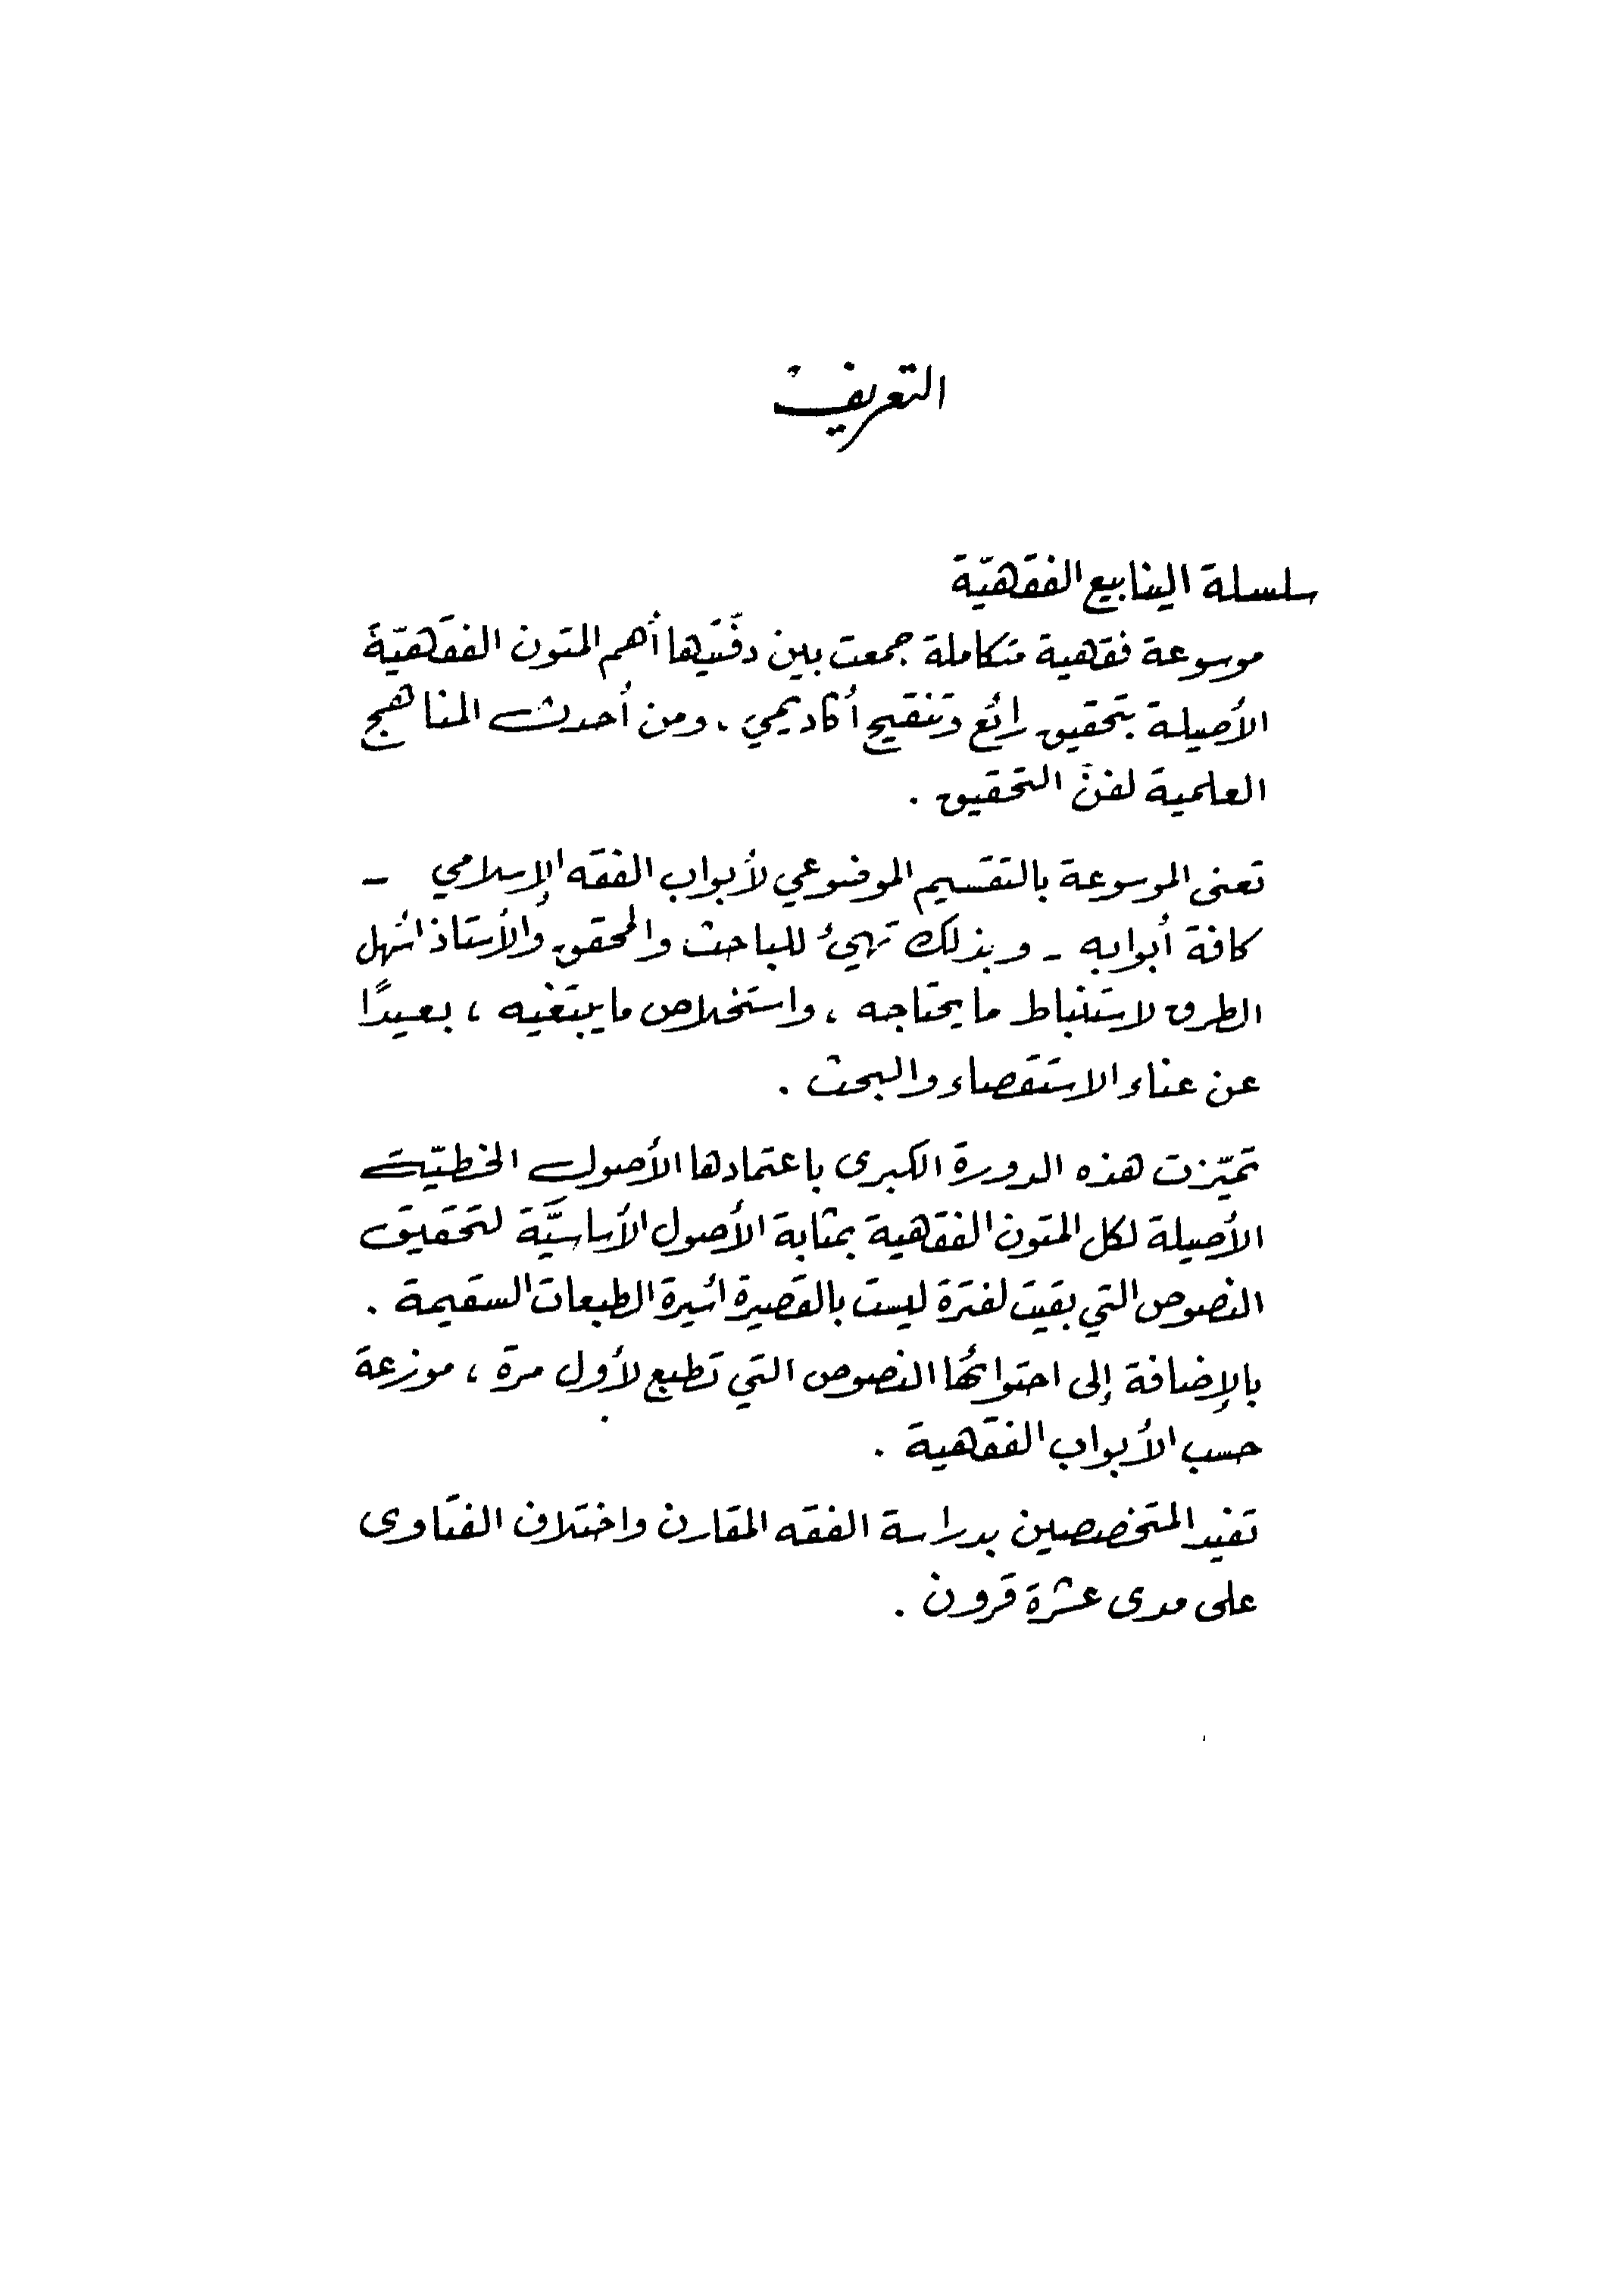 التعريف
سلسلة الينابيع الفقهيّة
موسوعة فقهية متكاملة جمعت بين دفّتيها أهم المتون الفقهيّة
الأصيلة بتحقيق رائع وتنقيح أكاديمي، ومن أحدث المناهج
العلمية لفنّ التحقيق .
تعنى الموسوعة بالتقسيم الموضوعي لأبواب الفقه الإسلامي -
كافة أبوابه - وبذلك تهيئ للباحث والمحقق والأستاذ أسهل
الطرق لاستنباط ما يحتاجه ، واستخلاص ما يبتغيه ، بعيدًا
عن عناء الاستقصاء والبحث .
تميّزت هذه الدورة الكبرى باعتمادها الأصول الخطيّة
الأصيلة لكل المتون الفقهية بمثابة الأصول الأساسيَّة لتحقيق
النصوص التي بقيت لفترة ليست بالقصيرة أسيرة الطبعات السقيمة .
بالإضافة إلى احتوائها النصوص التي تطبع لأول مرة ، موزعة
حسب الأبواب الفقهية .
تفيد المتخصصين بدراسة الفقه المقارن واختلاف الفتاوى
على مدى عشرة قرون .